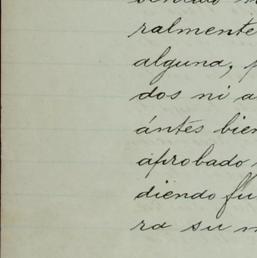 ralmente
alguna, p
dos ni a
ántes bien
aprobado
diendo fu
ra su m